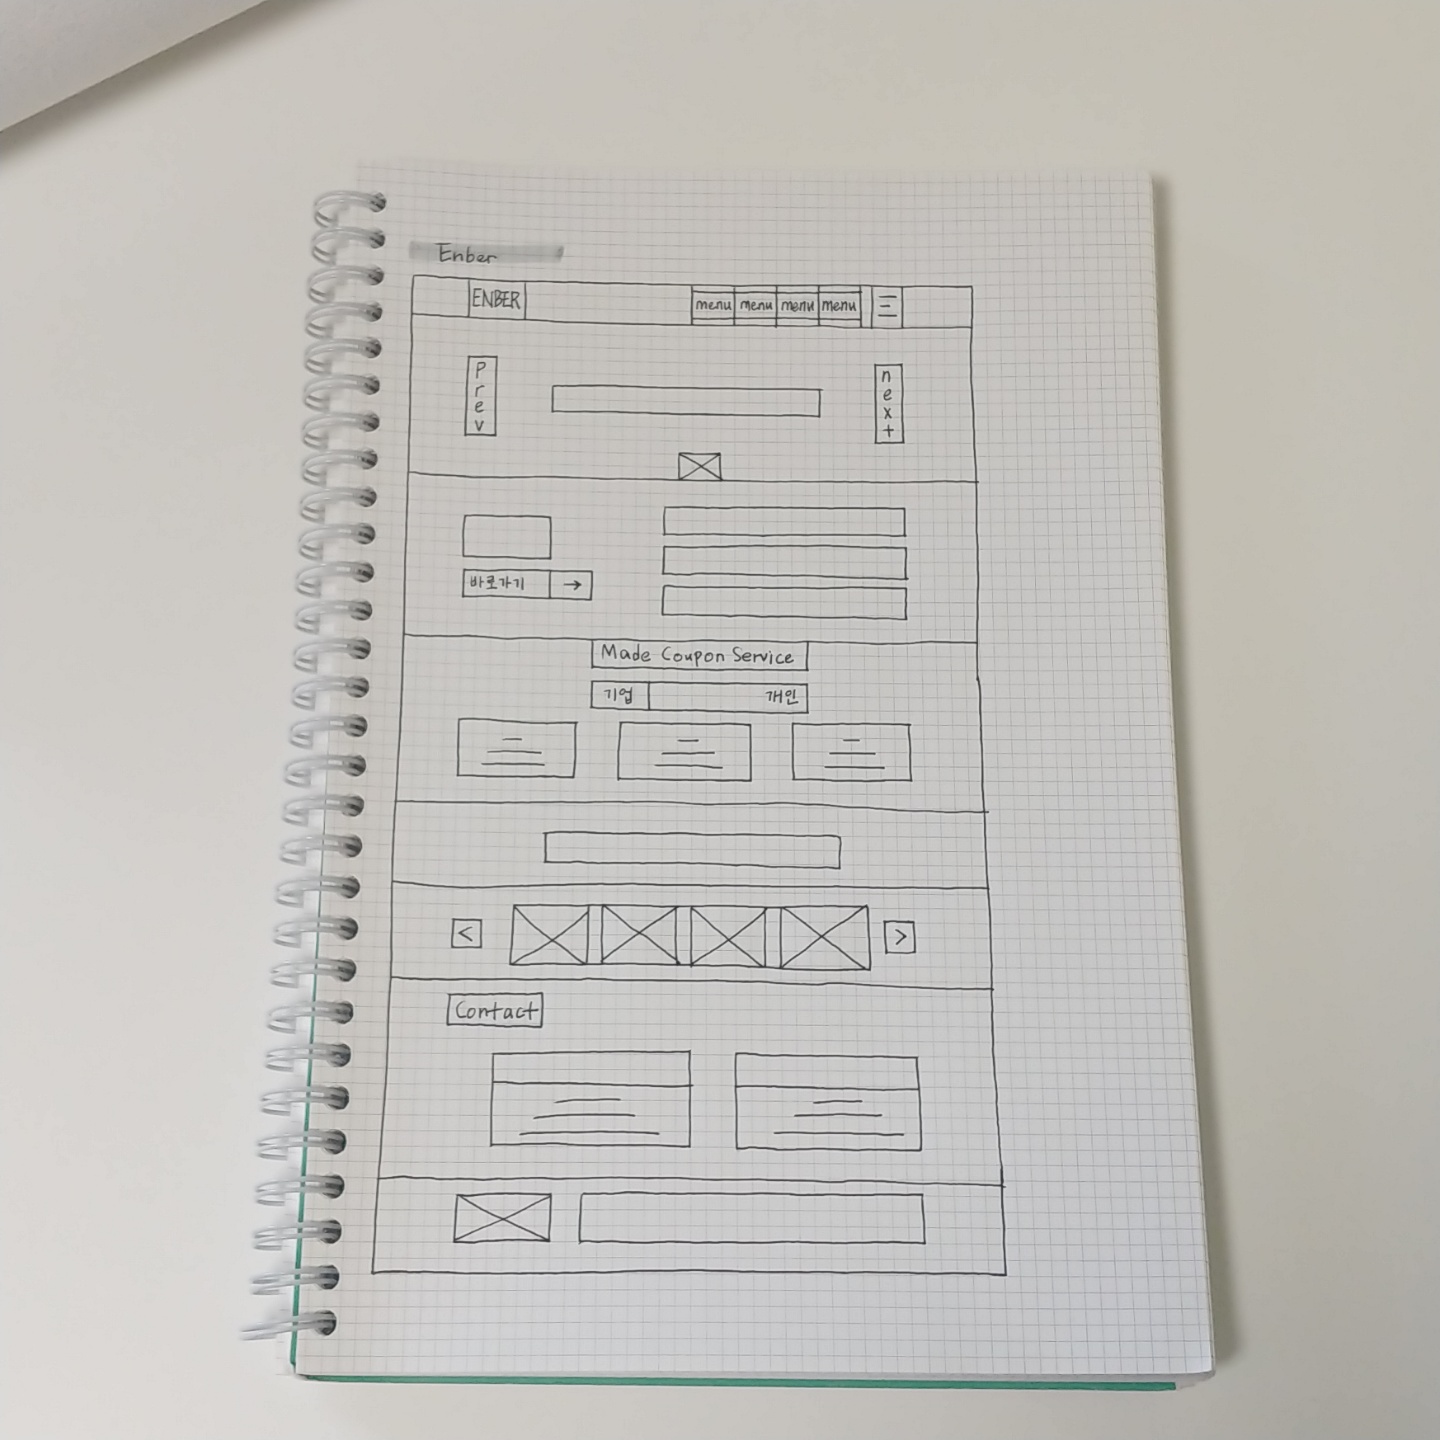 Enber
ENBER menu menu menu menu
Prev
next
바로가기 →
Made Coupon Service
기업 개인
< >
Contact